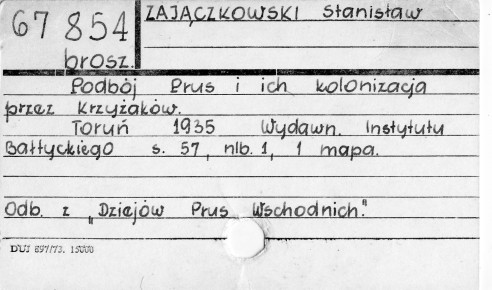 67 854
brosz.
ZAJĄCZKOWSKI Stanisław
Podbój Prus i ich kolonizacja
przez Krzyżaków.
Toruń 1935 Wydawn. Instytutu
Bałtyckiego s. 57, nlb. 1, 1 mapa.
Odb. z „Dziejów Prus Wschodnich."
DUJ 897/73. 15000